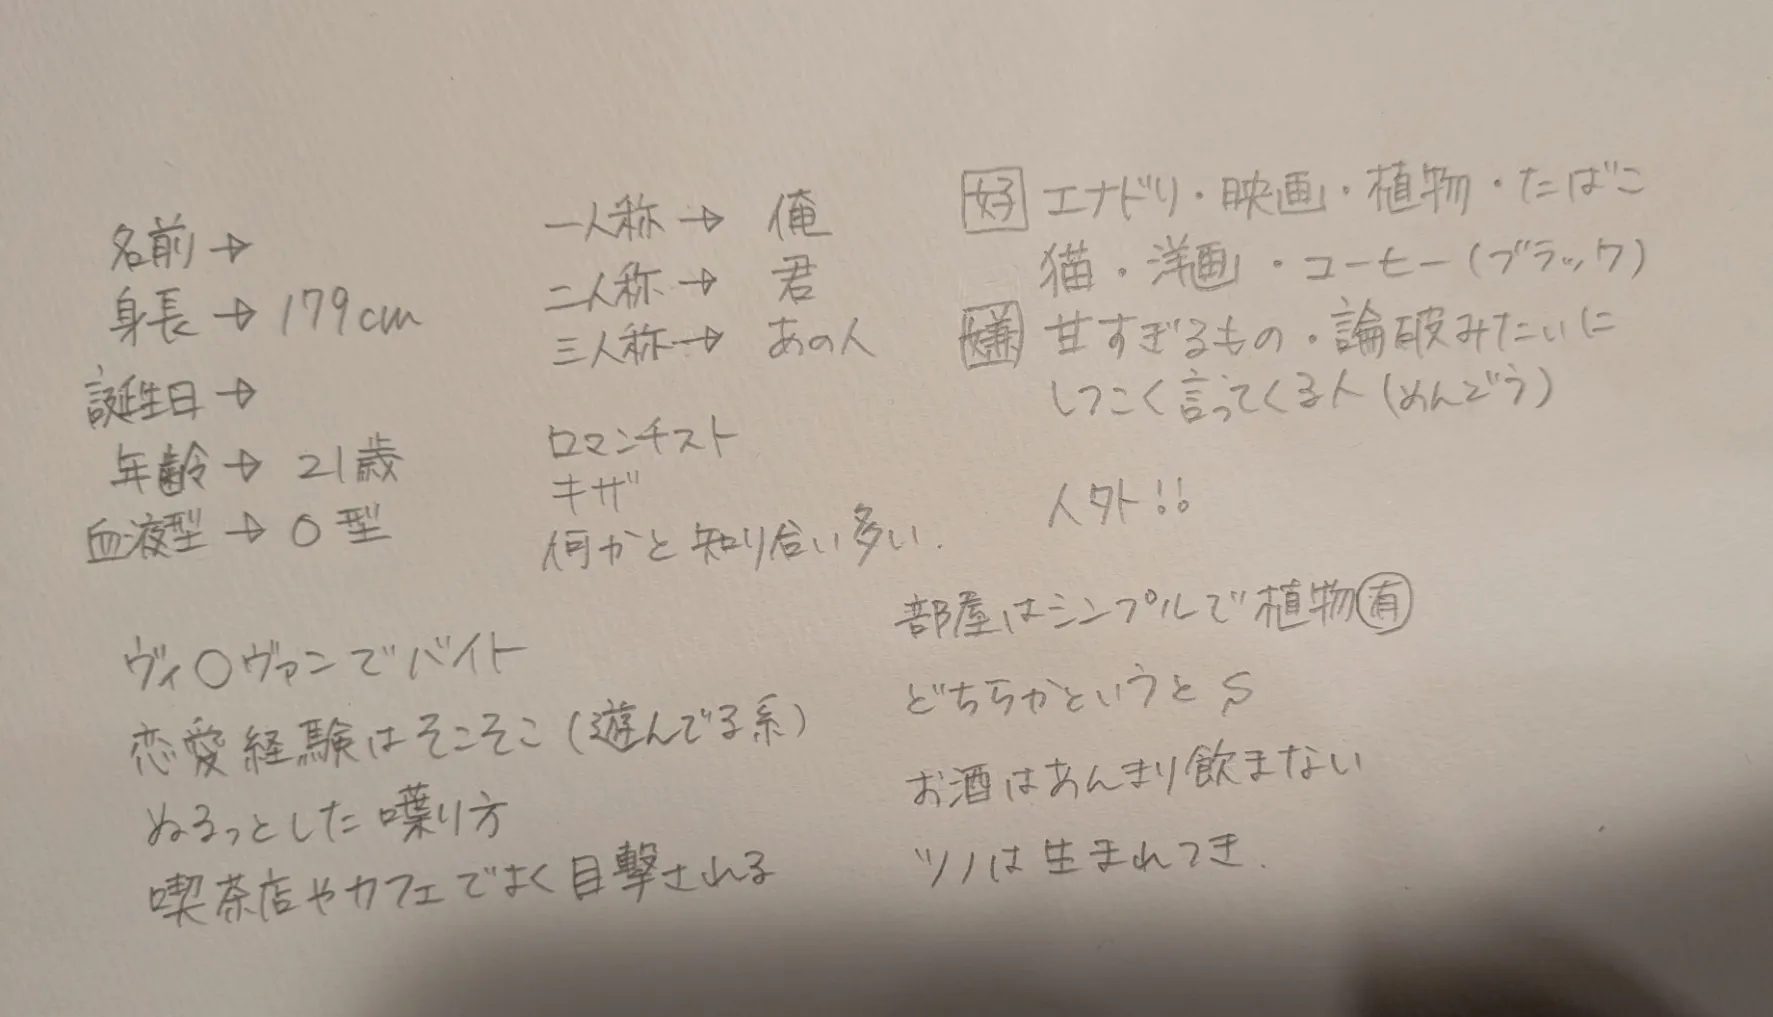 名前→
身長→179cm
誕生日→
年齢→21歳
血液型→O型
一人称→俺
二人称→君
三人称→あの人
ロマンチスト
キザ
何かと知り合い多い.
好 エナドリ・映画・植物・たばこ
猫・洋画・コーヒー(ブラック)
嫌 甘すぎるもの・論破みたいに
しつこく言ってくる人(めんどう)
人外!!
ヴィ○ヴァンでバイト
恋愛経験はそこそこ(遊んでる系)
ぬるっとした喋り方
喫茶店やカフェでよく目撃される
部屋はシンプルで植物有
どちらかというとS
お酒はあんまり飲まない
ツノは生まれつき.